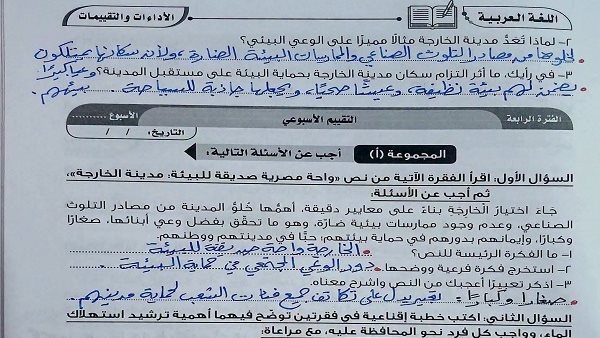 اللغة العربية
الأداءات والتقييمات
٢- لماذا تُعَدُّ مدينة الخارجة مثالًا مميزًا على الوعي البيئي؟
لخلوها من مصادر التلوث الصناعي والممارسات البيئية الضارة، ولأن سكانها يمتلكون وعيا كبيرًا
٣- في رأيك، ما أثر التزام سكان مدينة الخارجة بحماية البيئة على مستقبل المدينة؟
يضمن لهم بيئة نظيفة، وعيشًا صحيًا، ويجعلها جاذبة للسياحة بيئتهم.
الفترة الرابعة
التقييم الأسبوعي
الأسبوع ..........
التاريخ: / /
المجموعة (أ) أجب عن الأسئلة التالية:
السؤال الأول: اقرأ الفقرة الآتية من نص «واحة مصرية صديقة للبيئة: مدينة الخارجة»،
ثم أجب عن الأسئلة:
جَاءَ اختيارُ الخَارِجَةِ بناءً على معايير دقيقة، أهمُّها خُلوُّ المدينة من مصادر التلوث
الصناعي، وعدم وجود ممارسات بيئية ضارّة، وهو ما تحقّق بفضل وعي أبنائها، صغارًا
وكبارًا، وإيمانهم بدورهم في حماية بيئتهم؛ حبًّا في مدينتهم ووطنهم.
١- ما الفكرة الرئيسة للنص؟ الخارجة واحة صديقة للبيئة
٢- استخرج فكرة فرعية ووضحها. دور الوعي المجتمعي في حماية البيئة.
٣- اذكر تعبيرًا أعجبك من النص واشرح معناه.
صغارًا وكبارًا: تعبير يدل على تكاتف جميع فئات الشعب لحماية مدينتهم.
السؤال الثاني: اكتب خطبة إقناعية في فقرتين توضّح فيهما أهمية ترشيد استهلاك
الماء، وواجب كل فرد نحو المحافظة عليه، مع مراعاة: